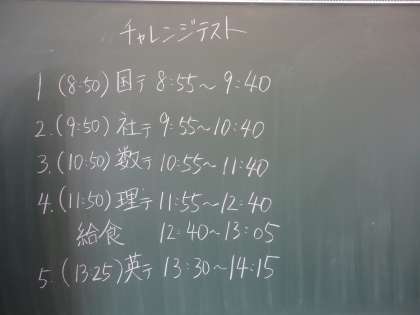 チャレンジテスト
1 (8:50) 国テ 8:55～9:40
2.(9:50) 社テ 9:55～10:40
3.(10:50) 数テ 10:55～11:40
4.(11:50) 理テ 11:55～12:40
給食 12:40～13:05
5.(13:25) 英テ 13:30～14:15